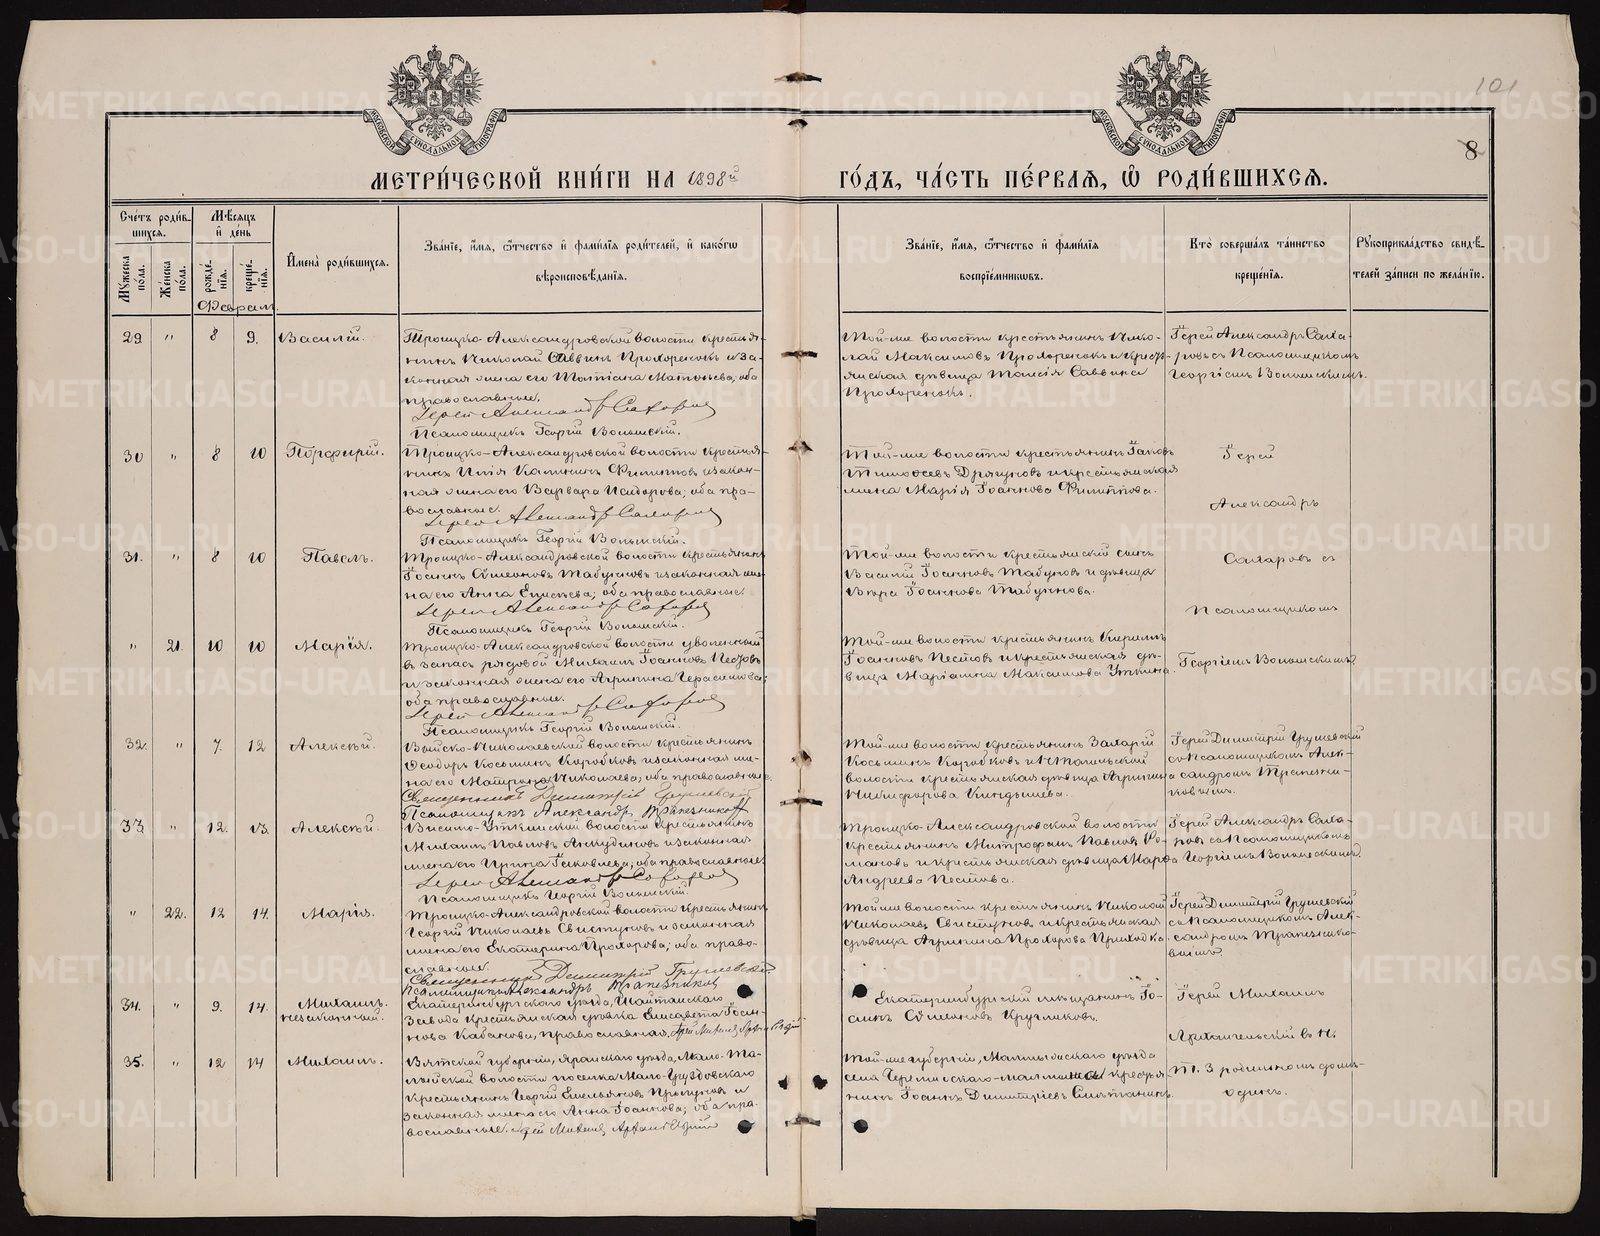 101
8
МЕТРИ́ЧЕСКОЙ КНИ́ГИ НА 1898й
ГО́ДЪ, ЧА́СТЬ ПЕ́РВАѦ, Ѿ РОДИ́ВШИХСѦ.
Сче́тъ роди́в-
шихсѧ.
Мѣ́сѧцъ
и҆ де́нь
Мꙋ́жеска по́ла.
Же́нска по́ла.
рожде́-
нїѧ.
креще́-
нїѧ.
И҆мена̀ роди́вшихсѧ.
Зва́нїе, и҆́мѧ, ѻ҆́тчество и҆ фами́лїѧ роди́телей, и҆ како́гѡ
вѣроисповѣ́данїѧ.
Зва́нїе, и҆́мѧ, ѻ҆́тчество и҆ фами́лїѧ
воспрїе́мникѡвъ.
Кто̀ соверша́лъ та́инство
креще́нїѧ.
Рꙋкоприкла́дство свидѣ́-
телей за́писи по жела́нїю.
29 " 8 9. Василій.
Троицко-Александровской волости крестья-
нинъ Николай Саввинъ Прохоренокъ и за-
конная жена его Татіана Матѳеева; оба
православные.
Іерей Александръ Сахаровъ
Псаломщикъ Георгій Волынскій.
Той-же волости крестьянинъ Нико-
лай Максимовъ Прохоренокъ и кресть-
янская дѣвица Таисія Саввина
Прохоренокъ.
Іерей Александръ Саха-
ровъ съ Псаломщикомъ
Георгіемъ Волынскимъ.
30 " 8 10 Порфирій.
Троицко-Александровской волости крестья-
нинъ Илія Филипповъ и закон-
ная жена его Варвара Исидорова; оба пра-
вославные.
Іерей Александръ Сахаровъ
Псаломщикъ Георгій Волынскій.
Той-же волости крестьянинъ Іаковъ
Тимоѳеевъ Дрягуновъ и крестьянская
жена Марія Іоаннова Филиппова.
Іерей
Александръ
31. " 8 10 Павелъ.
Троицко-Александровской волости крестьянинъ
Іоаннъ Сѵмеоновъ Табуновъ и законная же-
на его Анна Елисѣева; оба православные.
Іерей Александръ Сахаровъ
Псаломщикъ Георгій Волынскій.
Той-же волости крестьянскій сынъ
Василій Іоанновъ Табуновъ и дѣвица
Вѣра Іоаннова Табунова.
Сахаровъ съ
Псаломщикомъ
" 21. 10 10 Марія.
Троицко-Александровской волости уволенный
въ запасъ рядовой Михаилъ Іоанновъ Пестовъ
и законная жена его Агрипина Герасимова;
оба православные.
Іерей Александръ Сахаровъ
Псаломщикъ Георгій Волынскій.
Той-же волости крестьянинъ Кириллъ
Іоанновъ Пестовъ и крестьянская дѣ-
вица Маріанна Максимова Уткина.
Георгіемъ Волынскимъ.
32. " 7. 12 Алексѣй.
Выйско-Николаевской волости крестьянинъ
Ѳеодоръ Косьминъ Коробковъ и законная же-
на его Матрона Николаева; оба православные.
Священникъ Димитрій Грушевскій
Псаломщикъ Александръ Трапезниковъ
Той-же волости крестьянинъ Захарій
Косьминъ Коробковъ и Н Тагильской
волости крестьянская дѣвица Агрипина
Никифорова Киндышева.
Іерей Димитрій Грушевскій
съ Псаломщикомъ Алек-
сандромъ Трапезни-
ковымъ.
33. " 12. 13. Алексѣй.
Висимо-Уткинской волости крестьянинъ
Михаилъ Павловъ Анкудиновъ и законная
жена его Ирина Іаковлева; оба православные.
Іерей Александръ Сахаровъ
Псаломщикъ Георгій Волынскій.
Троицко-Александровской волости
крестьянинъ Митрофанъ Павловъ Ро-
мановъ и крестьянская дѣвица Марѳа
Андреева Пестова.
Іерей Александръ Саха-
ровъ съ Псаломщикомъ
Георгіемъ Волынскимъ.
" 22. 12 14. Марія.
Троицко-Александровской волости крестьянинъ
Георгій Николаевъ Свистуновъ и законная
жена его Екатерина Прохорова; оба право-
славные.
Священникъ Димитрій Грушевскій
Псаломщикъ Александръ Трапезниковъ
Той же волости крестьянинъ Николай
Николаевъ Свистуновъ и крестьянская
дѣвица Агрипина Прохорова Приходка.
Іерей Димитрій Грушевскій
съ Псаломщикомъ Алек-
сандромъ Трапезнико-
вымъ.
34. " 9. 14. Михаилъ.
незаконный.
Екатеринбургскаго уѣзда, Шайтанскаго
Завода крестьянская дѣвка Елисавета Іоан-
нова Кабанова, православная.
Екатеринбургскій мѣщанинъ Іо-
аннъ Сѵмеоновъ Кругликовъ.
Іерей Михаилъ
Архангельскій въ Н.
35. " 12 14 Михаилъ.
Вятской губерніи, Яранскаго уѣзда,
волости поселка
крестьянинъ Георгій Емельяновъ и
законная жена его Анна Іоаннова; оба пра-
вославные. Іерей Михаилъ Архангельскій
Той-же губерніи, Малмыжскаго уѣзда
села кресть-
янинъ Іоаннъ Димитріевъ
Т. З родильномъ домѣ-
одинъ.